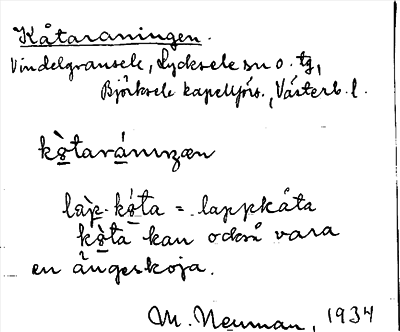 Kåtaraningen.
Vindelgransele, Lycksele sn o. tg,
Björksele kapellförs., Västerb. l.
kò̱tará̱nıŋæn
lap̀. kó̱ta = lappkåta
kò̱ta kan också vara
en ängeskoja.
M. Neuman, 1934